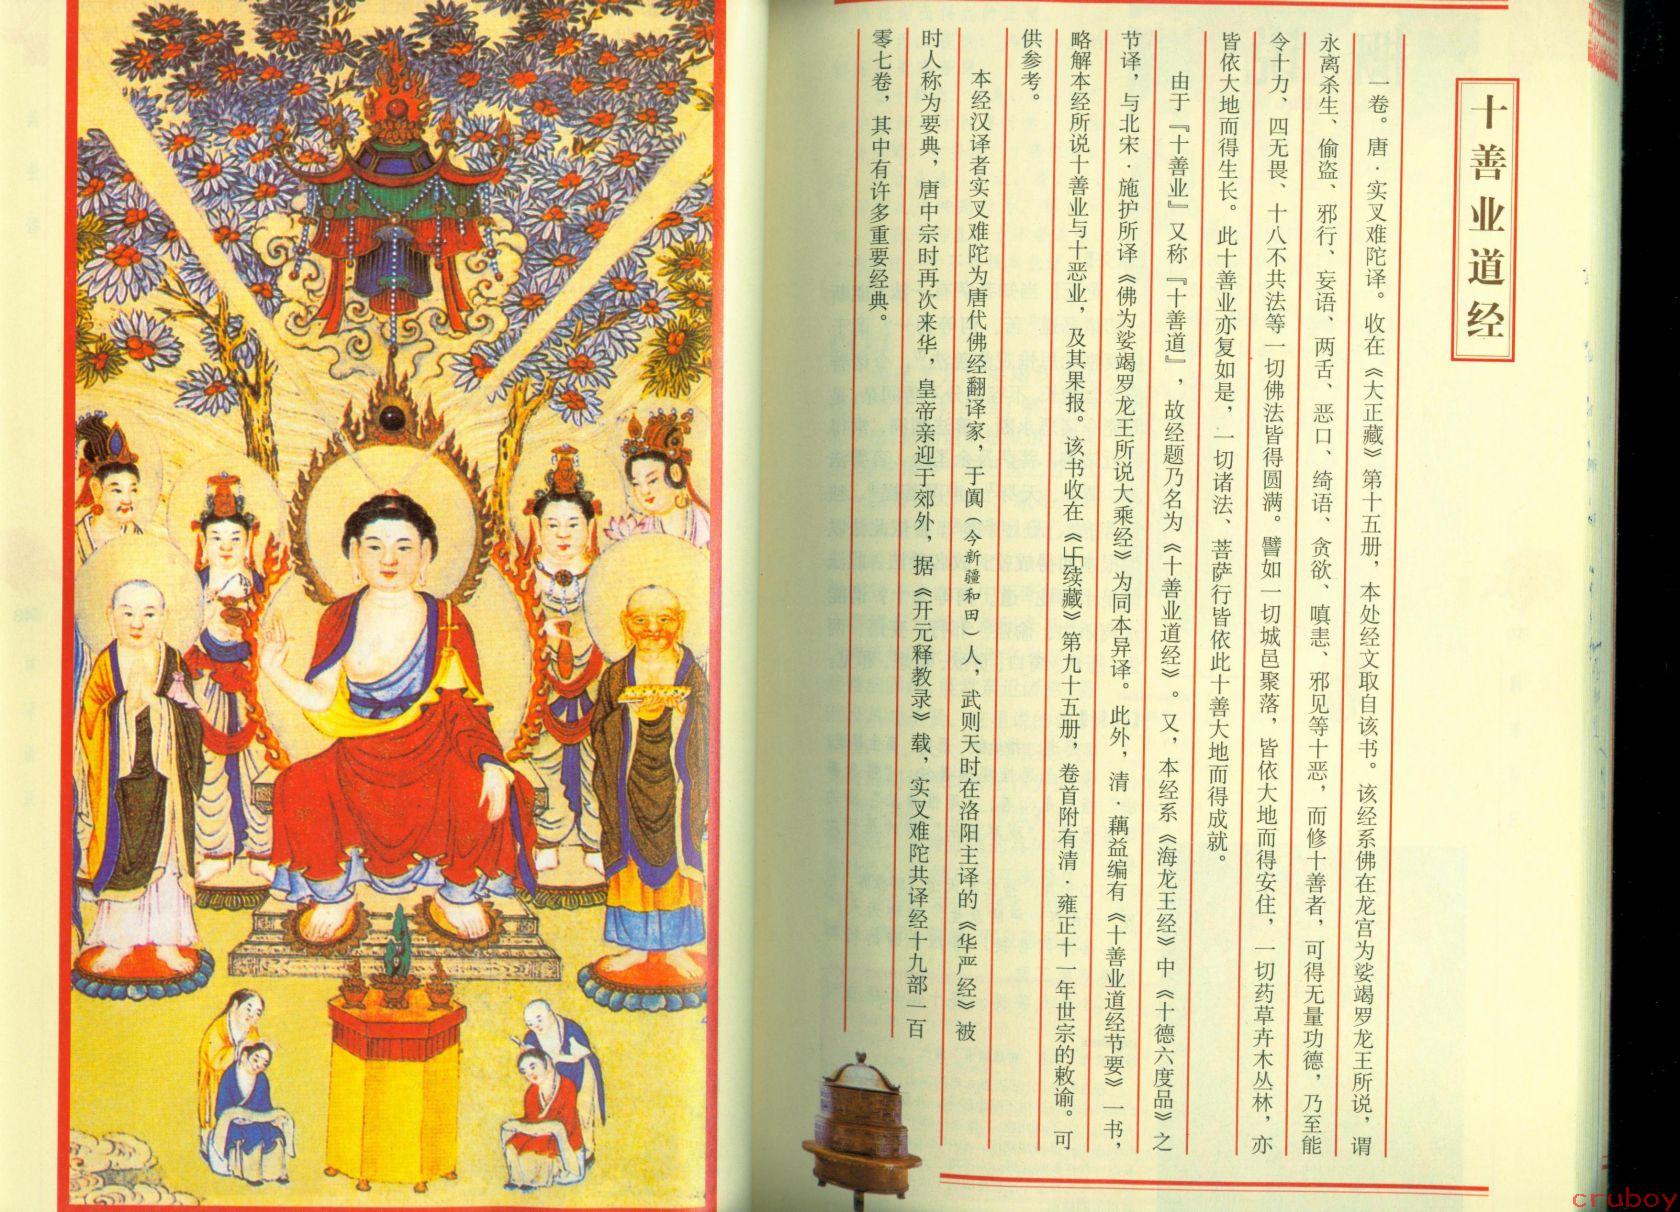 十善业道经
一卷。唐·实叉难陀译。收在《大正藏》第十五册，本处经文取自该书。该经系佛在龙宫为娑竭罗龙王所说，谓
永离杀生、偷盗、邪行、妄语、两舌、恶口、绮语、贪欲、嗔恚、邪见等十恶，而修十善者，可得无量功德，乃至能
令十力、四无畏、十八不共法等一切佛法皆得圆满。譬如一切城邑聚落，皆依大地而得安住，一切药草卉木丛林，亦
皆依大地而得生长。此十善业亦复如是，一切诸法、菩萨行皆依此十善大地而得成就。
由于『十善业』又称『十善道』，故经题乃名为《十善业道经》。又，本经系《海龙王经》中《十德六度品》之
节译，与北宋·施护所译《佛为娑竭罗龙王所说大乘经》为同本异译。此外，清·藕益编有《十善业道经节要》一书，
略解本经所说十善业与十恶业，及其果报。该书收在《卐续藏》第九十五册，卷首附有清·雍正十一年世宗的敕谕。可
供参考。
本经汉译者实叉难陀为唐代佛经翻译家，于阗（今新疆和田）人，武则天时在洛阳主译的《华严经》被
时人称为要典，唐中宗时再次来华，皇帝亲迎于郊外，据《开元释教录》载，实叉难陀共译经十九部一百
零七卷，其中有许多重要经典。
cruboy